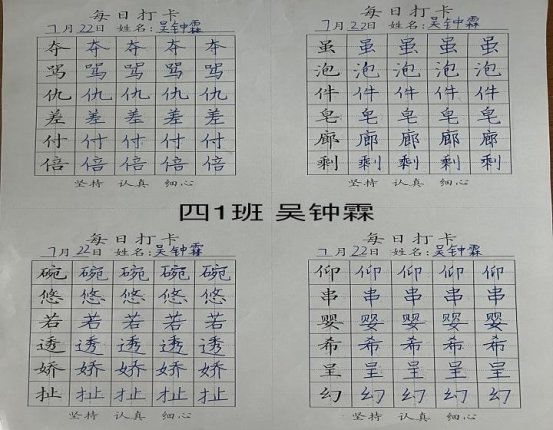 每日打卡
7月22日 姓名:吴钟霖
夺 夺 夺 夺 夺
骂 骂 骂 骂 骂
仇 仇 仇 仇 仇
差 差 差 差 差
付 付 付 付 付
倍 倍 倍 倍 倍
坚持 认真 细心
每日打卡
7月22日 姓名:吴钟霖
虽 虽 虽 虽 虽
泡 泡 泡 泡 泡
件 件 件 件 件
皂 皂 皂 皂 皂
廊 廊 廊 廊 廊
剩 剩 剩 剩 剩
坚持 认真 细心
四1班 吴钟霖
每日打卡
7月22日 姓名:吴钟霖
碗 碗 碗 碗 碗
悠 悠 悠 悠 悠
若 若 若 若 若
透 透 透 透 透
娇 娇 娇 娇 娇
扯 扯 扯 扯 扯
坚持 认真 细心
每日打卡
7月22日 姓名:吴钟霖
仰 仰 仰 仰 仰
串 串 串 串 串
婴 婴 婴 婴 婴
希 希 希 希 希
呈 呈 呈 呈 呈
幻 幻 幻 幻 幻
坚持 认真 细心